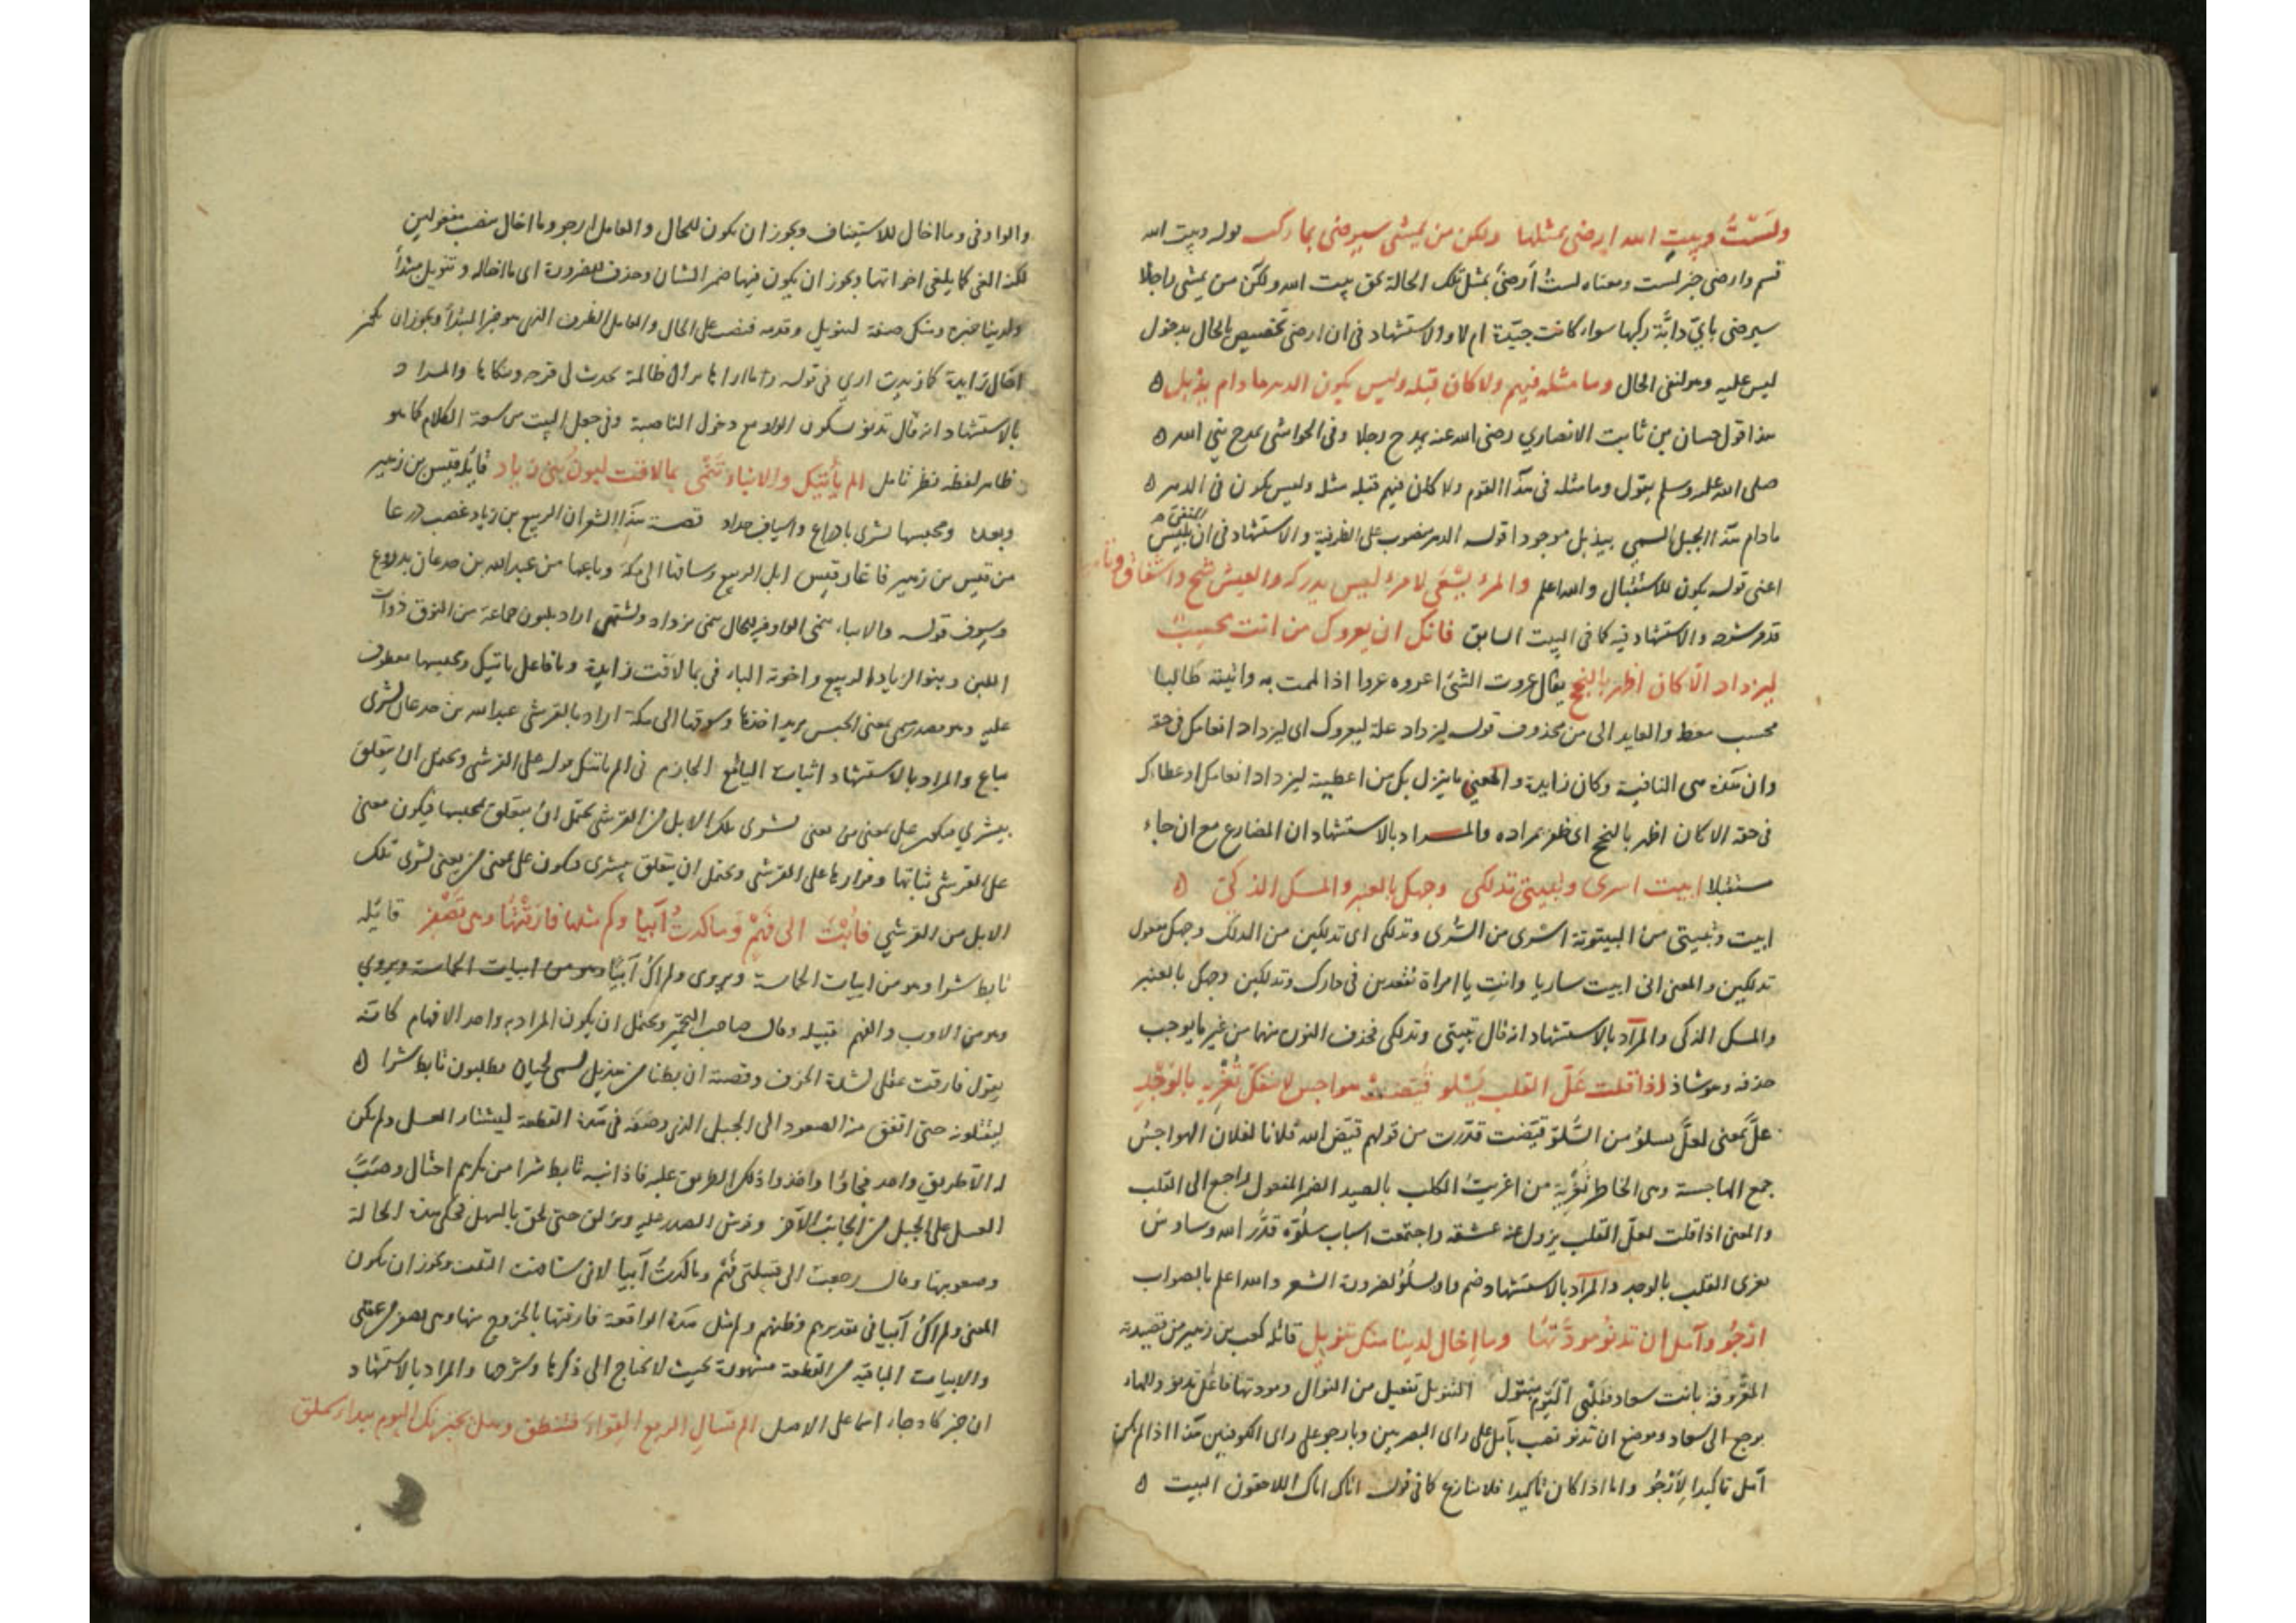 ولَسْتُ وبيتِ الله ارضى بمثلها ولكن من يمشي سيرضى بما ركب قوله وبيت الله
قسم وارضى خبر لست ومعناه لستُ اَرضىَ بمثل تلك الحالة بحق بيت الله ولكن من يمشي راجلا
سيرضى باىّ دابّة ركبها سواء كانت جيّدة ام لا والاستشهاد فى ان ارضى تخصيص بالحال بدخول
ليس عليه وهو لنفى الحال وما مثله فيهم ولا كان قبله وليس يكون الدهر ما دام يذبل ه
هذا قول حسان بن ثابت الانصاري رضى الله عنه يمدح رجلا وفى الحواشى يمدح بنى الله ه
صلى الله عليه وسلم يقول وما مثله فى هذا القوم ولا كان فيهم قبله مثله وليس يكون فى الدهر ه
ما دام هذا الجبل المسمى بيذبل موجودا قوله الدهر منصوب على الظرفية والاستشهاد فى ان المنفى بليس
اعنى قوله يكون للاستقبال والله اعلم والمرءُ يسْعَى لامرء ليس يدركه والعيش شح واشفاق وتا
قد مر شرحه والاستشهاد فيه كما فى البيت السابق فانك ان يعروك من انت محسِبٌ
ليزداد الّا كان اظفر بالنجح يقال عروت الشئ اعروه عروا اذا الممت به واتيته طالبا
محسب معط والعايد الى من محذوف قوله ليزداد علة ليعروك اى ليزداد انعامك فى حقه
وان هذه هى النافية وكان زايدة والمعنى ما ينزل بك من اعطيته ليزداد انعامك او عطاءك
فى حقه الا كان اظفر بالنجح اى ظفر بمراده والمراد بالاستشهاد ان المضارع مع ان جاء
مستقبلا ابيت اسرى وتبيتى تدلكى وجهك بالعنبر والمسك الذكىّ ه
ابيت وتبيتى من البيتوتة اسرى من السُرى وتدلكى اى تدلكين من الدلك وجهك مفعول
تدلكين والمعنى انى ابيت ساريا وانتِ يا امراة تقعدين فى دارك وتدلكين وجهك بالعنبر
والمسك الذكى والمراد بالاستشهاد انه قال تبيتى وتدلكى فحذف النون منهما من غير ما يوجب
حذفه وهو شاذ اذا قلت عَلّ القلب يَسْلو قُيّضتْ هواجس لا تنفكّ تُغْرِيه بالوَجْدِ
علّ بمعنى لعلّ يسلوُ من السُّلوّ قيّضت قدّرت من قولهم قيّض الله فلانا لفلان الهواجسُ
جمع الهاجسة وهى الخاطر تُغْرِيه من اغريتُ الكلب بالصيد الضمير المفعول راجع الى القلب
والمعنى اذا قلت لعلّ القلب يزول عنه عشقه واجتمعت اسباب سلُوّه قدّر الله وساوس
تغرى القلب بالوجد والمراد بالاستشهاد ضم واو يسلُوُ لضرورة الشعر والله اعلم بالصواب
ارْجُو وآمل ان تدنُو مودّتها وما اِخال لدينا منك تنويل قائله كعب بن زهير من قصيدته
المعروفة بانت سعاد فقَلْبِى اليَوْم متبول التنويل تفعيل من النوال ومودتها فاعل تدنو والهاء
يرجع الى سعاد وموضع ان تدنو نصب بآمل على راى البصريين وبارجو على راى الكوفيين هذا اذا لم يكن
آمل تاكيدا لاَرْجُو واما اذا كان تاكيدا فلا تنازع كما فى قوله اتاك اتاك اللاحقون البيت ه
والواو فى وما اخال للاستيناف ويجوز ان يكون للحال والعامل ارجو وما اخال ينصب مفعولين
لكنه الغى كما يلغى اخواتها ويجوز ان يكون فيها ضمير الشان وحذف للضرورة اى ما اخاله وتنويل مبتدأ
ولدينا خبره ومنك صفة لتنويل وقدمه فنصب على الحال والعامل الظرف الذى هو خبر المبتدأ ويجوز ان يكون
اخال زايدة كما زيدت ارى فى قوله
بالاستشهاد انه قال تدنو بسكون الواو مع دخول الناصبة وفى جعل البيت من سعة الكلام كما هو
ظاهر لفظه نظر تامل الم يأتيك والانباء تَنْمى بما لاقت لبون بَنى زياد قايله قيس بن زهير
وبعده ومحبسها لشرى بادراع واسياف حداد قصة هذا الشعر ان الربيع بن زياد غصب درعا
من قيس بن زهير فاغار قيس ابل الربيع وساقها الى مكة وباعها من عبد الله بن جدعان بدروع
وسيوف قوله والانباء تنمى الواو فيه للحال تنمى تزداد وتنتمى اراد بلبون جماعة من النوق ذوات
اللبن وبنو الزياد الربيع واخوته الباء فى بما لاقت زايدة وما فاعل ياتيك ومحبسها معطوف
عليه وهو مصدر ميمى بمعنى الحبس يريد اخذها وسوقها الى مكة اراد بالقرشى عبد الله بن جدعان لشرى
يباع والمراد بالاستشهاد اثبات اليائع الجازم فى الم ياتيك قوله على القرشى ويحتمل ان يتعلق
بيشرى فيكون على بمعنى من يعنى لشرى تلك الابل من القرشى يحتمل ان يتعلق بمحبسها فيكون معنى
على القرشى ثباتها وقرارها على القرشى ويحتمل ان يتعلق بيشرى فيكون على بمعنى من يعنى لشرى تلك
الابل من القرشي فاُبْتُ الى فَهْمٍ وَما كدتُ آئباً وكم مثلها فارَقْتُها وهى تَصْفِر قايله
تابط شرا وهو من ابيات الحماسة ويروى ولم اكُ آيباً وهو من ابيات الحماسة ويروى
وهو من الاوب والفهم قبيلة وقال صاحب التخمير ويحتمل ان يكون المراد به واحد الافهام كانه
يقول فارقت عقلى لشدة الخوف وقصته ان بطنا من هذيل تسمى لحيان يطلبون تابط شرا ه
ليقتلونه حتى اتفق منه الصعود الى الجبل الذى وصفه فى هذه القطعة ليشتار العسل ولم يكن
له الّا طريق واحد فجاؤا واخذوا ذلك الطريق عليه فاذا نبه تابط شرا من مكرهم احتال وصَبّ
العسل على الجبل من الجانب الآخر وفرش الصدر عليه وتزلق حتى لحق بالسهل فحكى هذه الحالة
وصعوبتها وقال رجعت الى قبيلتى فَهْم وما كدتُ آيبا لانى شاهدت التلف ويجوز ان يكون
المعنى ولم اكُ آيبا فى تقديرهم وظنهم ولم مثل هذه الواقعة فارقتها بالخروج منها وهى تصفر
والابيات الباقية من القطعة مشهورة بحيث لا تحتاج الى ذكرها وشرحها والمراد بالاستشهاد
ان خبر كاد جاء اسما على الاصل الم تسال الربع القواء فينطق وهل يخبرنك اليوم بيداء سملق